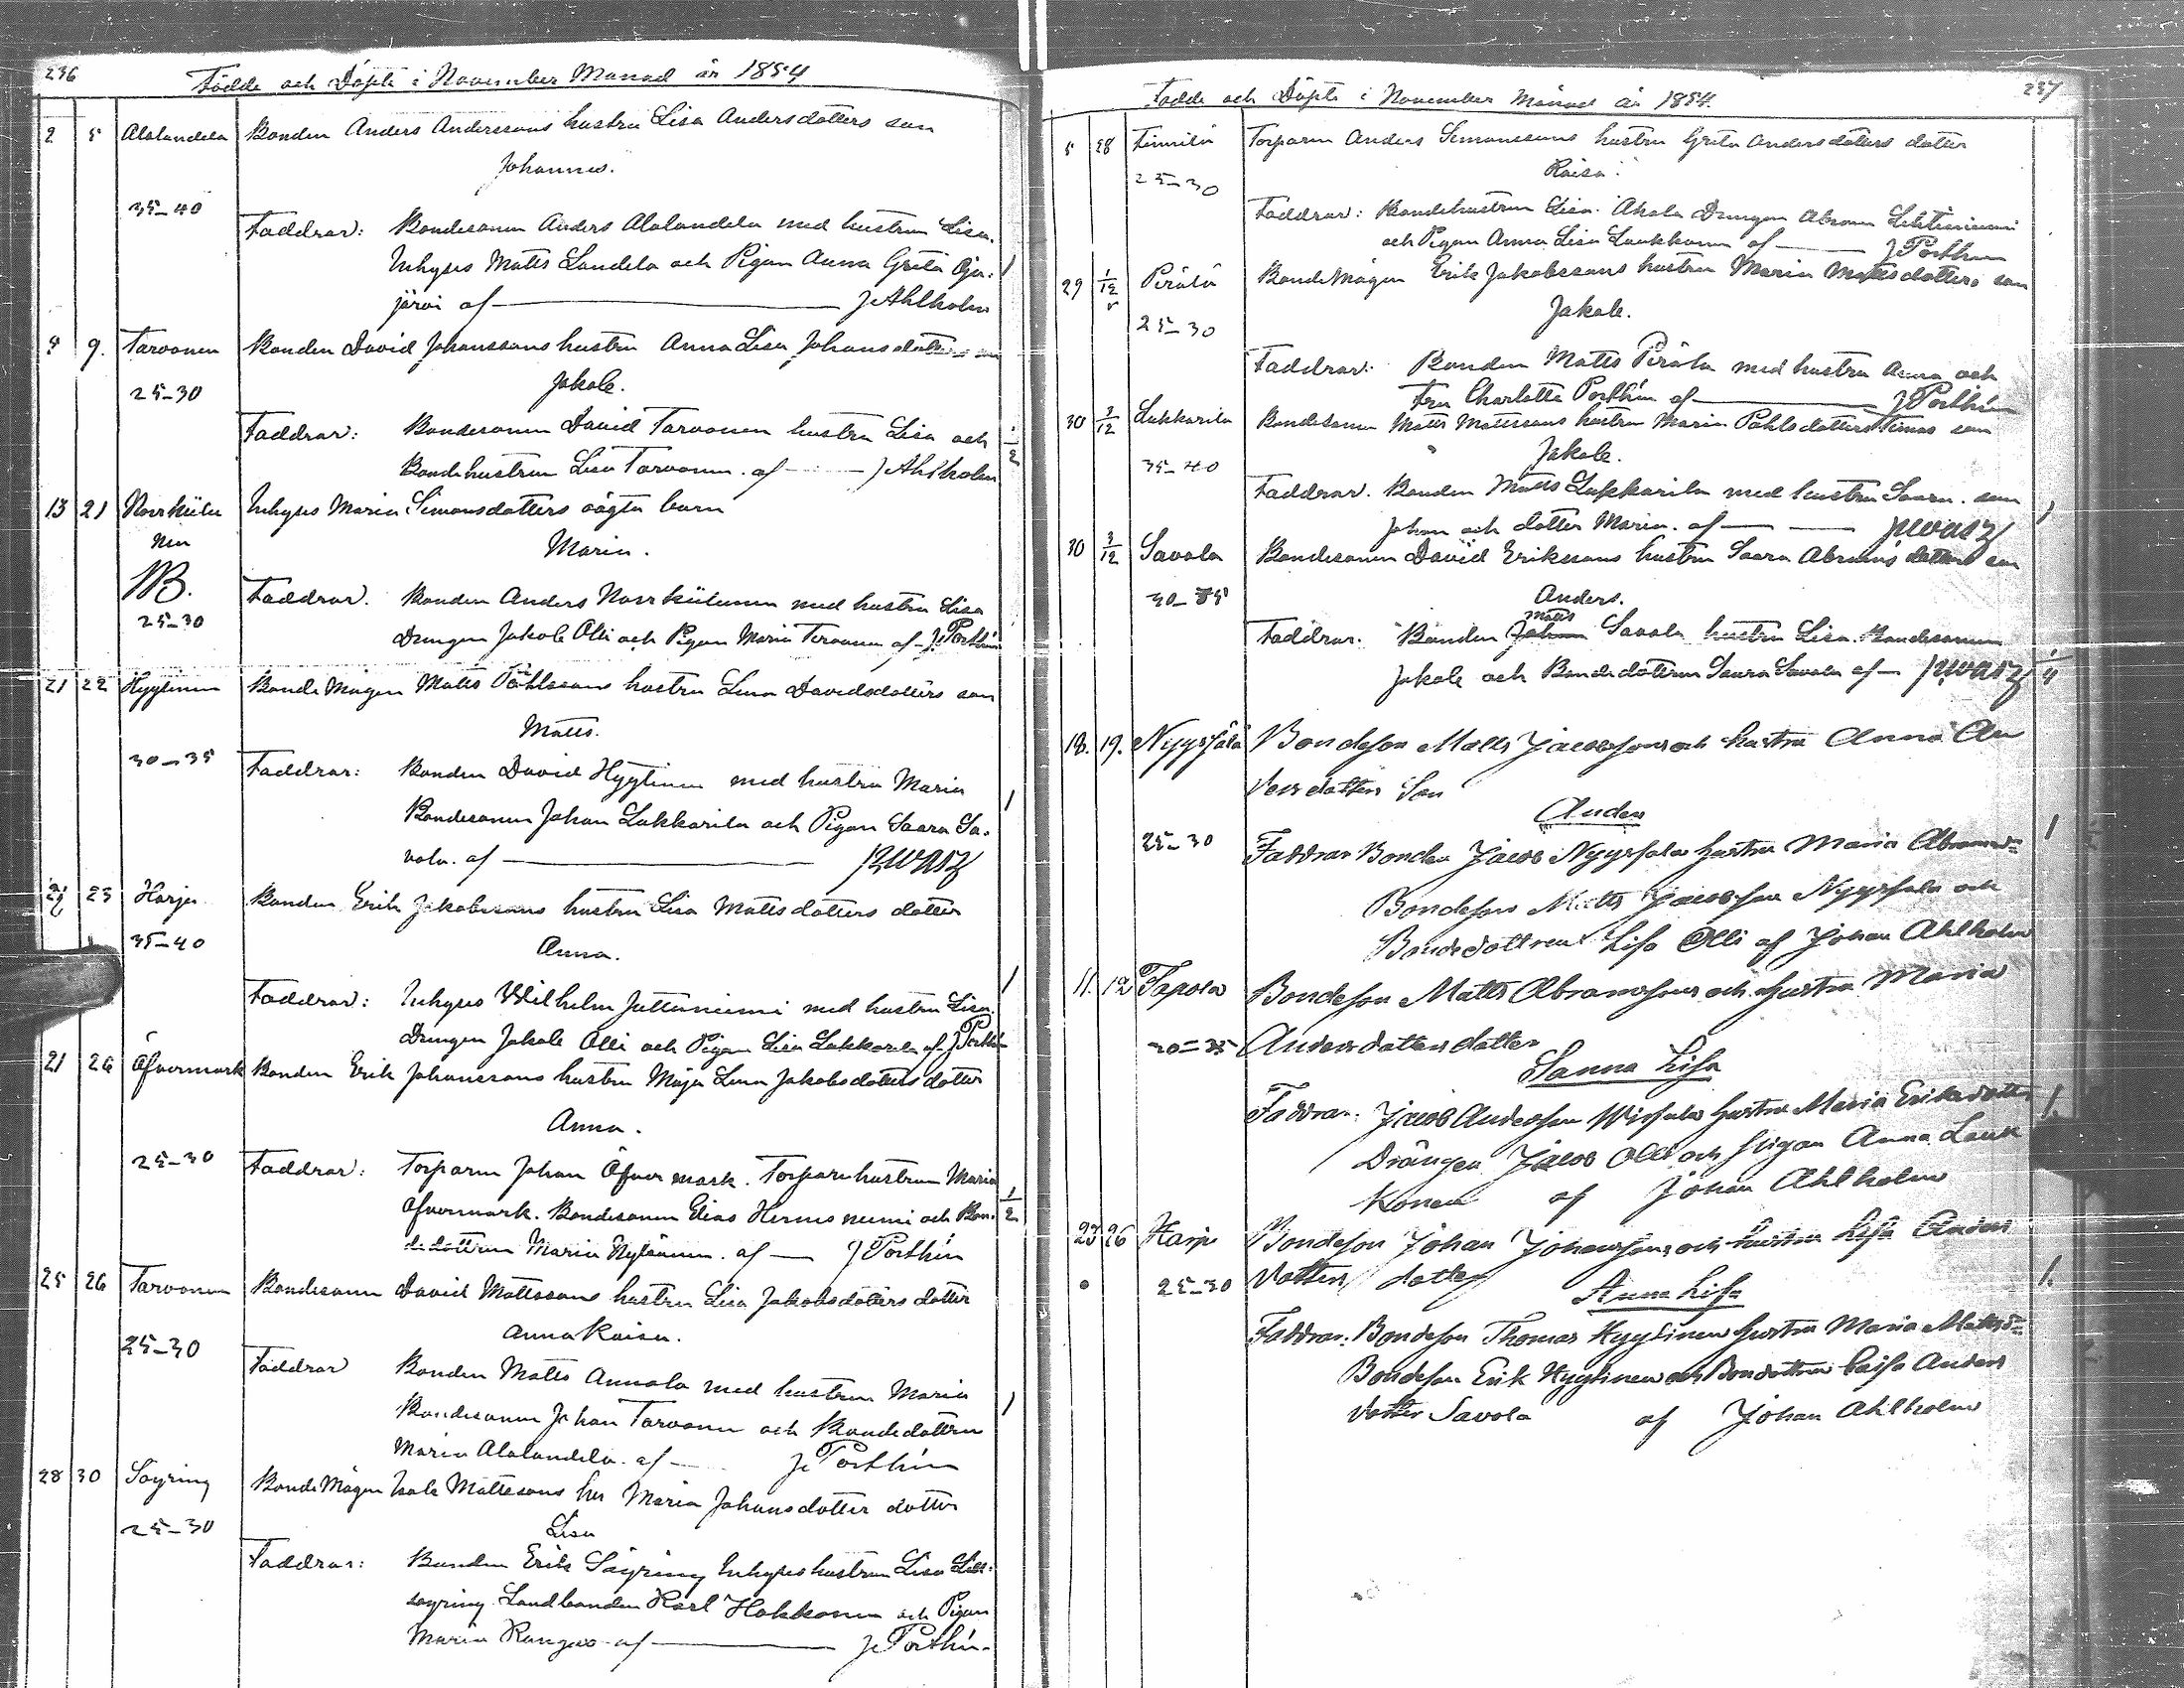 236
Födde och Döpte i November Månad år 1854
2 5 Alalandela Bonden Anders Anderssons hustru Lisa Andersdotters son
Johannes.
35-40
Faddrar: Bondesonen Anders Alalandela med hustru Lisa.
Inhyses Matts Landela och Pigan Anna Greta Oja- 1
järvi af J Ahlholm
9. Tarvonen Bonden David Johanssons hustru Anna Lisa Johansdotters
Jakob.
25-30
Faddrar: Bondesonen David Tarvonen hustru Lisa och
Bondehustrun Lisa Tarvonen. af J Ahlholm
13 21 Inhyses Maria Simonsdotters oägta barn
Maria.
NB.
Faddrar. Bonden Anders med hustru Lisa
25-30
Drengen Jakob Olli och Pigan Maria Tervonen af J. Porthin
21 22 Hyytinen Bonde Mågen Matts Påhlssons hustru Lena Davidsdotters son
Matts.
30-35
Faddrar: Bonden David Hyytinen med hustru Maria
Bondesonen Johan Lukkarila och Pigan Saara Sa- 1
vola. af
23 Harju Bonden Erik Jakobssons hustru Lisa Mattsdotters dotter
35-40
Anna.
Faddrar: Inhyses Wilhelm Juttuniemi med hustru Lisa. 1
Drengen Jakob Olli och Pigan Lisa Lukkarila af J Porthin
21 26 Öfvermark Bonden Erik Johanssons hustru Maja Lena Jakobsdotters dotter
Anna.
25-30
Faddrar: Torparen Johan Öfvermark. Torparehustrun Maria
Öfvermark. Bondesonen Elias Hernesniemi och Bon- 1/2
dedottren Maria af J Porthin
25 26 Tarvonen Bondesonen David Mattssons hustru Lisa Jakobsdotters dotter
Anna Kaisa.
25-30
Faddrar Bonden Matts Annala med hustrun Maria
Bondesonen Johan Tarvonen och Bondedottren 1
Maria Alalandela. af J. Porthin
28 30 Sayring Bonde Mågen Isak Mattssons hu Maria Johansdotter dotter
25-30
Lisa
Faddrar: Bonden Erik Sayring Inhyseshustrun Lisa
sayring Landbonden Karl Hakkonen och Pigan
Maria Kangas af J. Porthin
237
Födde och Döpte i November Månad år 1854.
5 28 Torparen Anders Simonssons hustru Greta Andersdotters dotter
Kaisa.
25-30
Faddrar: Bondehustrun Lisa Ahola Drengen Abram Lehtiniemi
och Pigan Anna Lisa Laukkonen af J Porthin
29 1/12 Perälä Bonde Mågen Erik Jakobssons hustru Maria Mattsdotters son
Jakob.
25-30
Faddrar: Bonden Matts Perälä med hustru Anna och
Fru Charlotta Porthin af J Porthin
30 3/12 Lukkarila Bondesonen Matts Mattssons hustru Maria Påhlsdotters Timas son
Jakob.
35-40
Faddrar. Bonden Matts Lukkarila med hustru Saara. son
Johan och dotter Maria. af 1
30 3/12 Savola Bondesonen David Erikssons hustru Saara Abramsdotters son
30-35
Anders.
Matts
Faddrar: Bonden Johan Savola hustru Lisa. Bondesonen
Jakob och Bondedottren Saara Savola af
18. 19. Nyyssälä Bondeson Matts Jacobssons och hustru Anna An
ders dotters Son
Anders
25-30
Faddrar Bonden Jacob Nyyssälä hustru Maria Abramsd= 1
Bondeson Matts Jacobsson Nyyssälä och
Bondedottren Lisa Olli af Johan Ahlholm
11. 12 Tapola Bondeson Matts Abramssons och hustru Maria
Anders dotters dotter
Sanna Lisa
Faddrar. Jacob Andersson hustru Maria Eriksdotter 1.
Drängen Jacob Olli och pigan Anna Lauk
konen af Johan Ahlholm
23 26 Harju Bondeson Johan Johanssons och hustru Lisa Anders
25-30 dotters dotter 1.
Anna Lisa
Faddrar. Bondeson Thomas Hyytinen hustru Maria Mattsd=
Bondeson Erik Hyytinen och Bondedottren Caisa Anders
dotter Savola af Johan Ahlholm